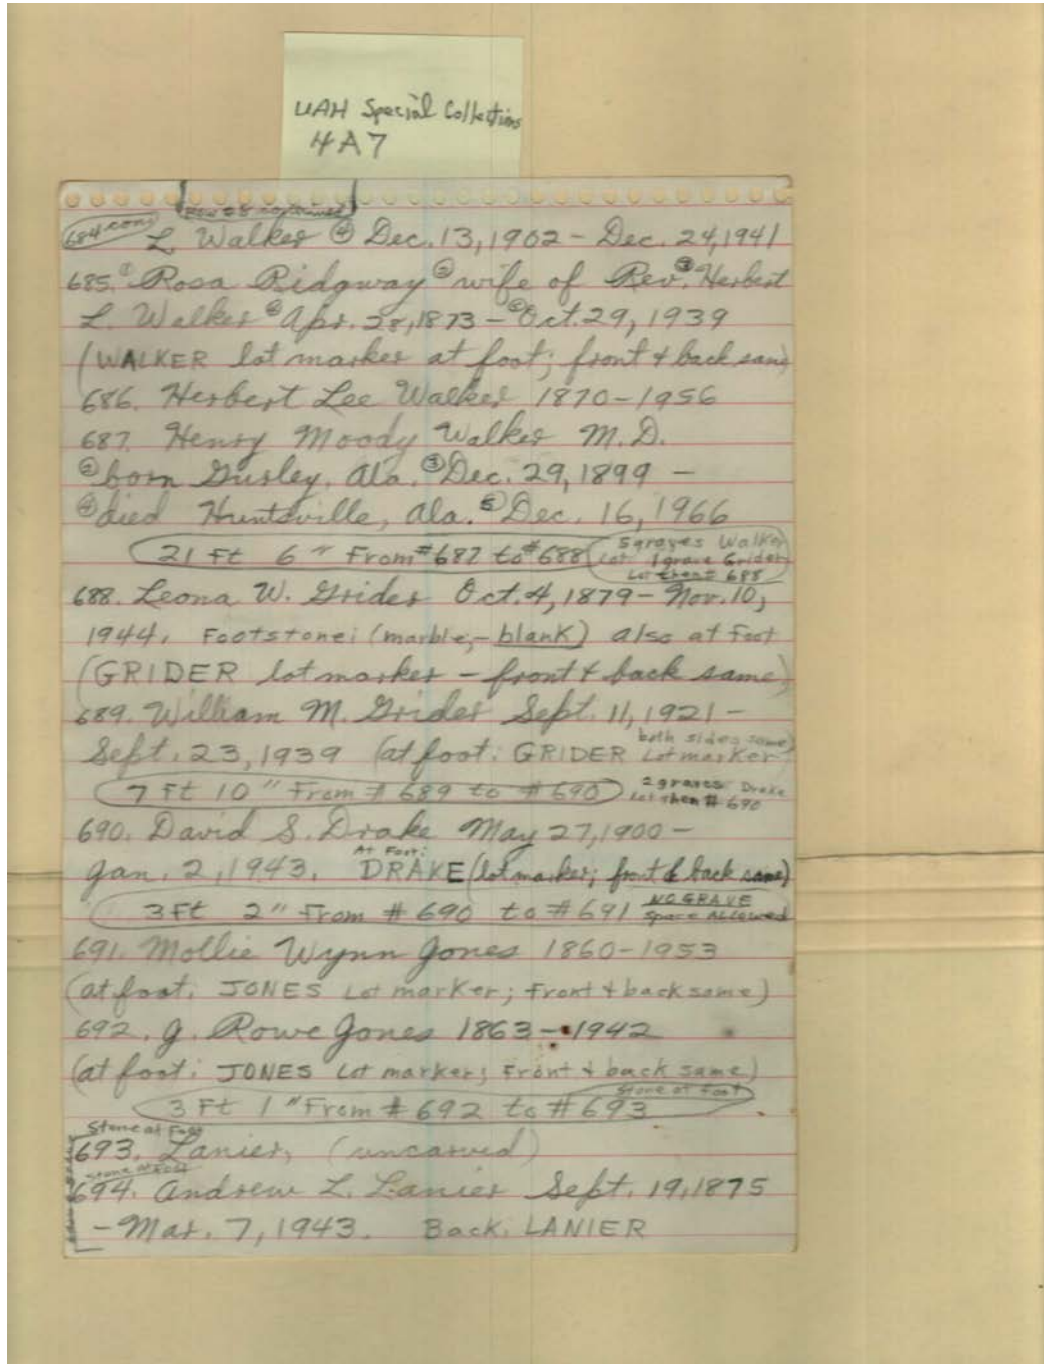 UAH Special Collections
4A7
Row #8 continued
684 con.
L. Walker ④ Dec. 13, 1902 - Dec. 24, 1941
685. ① Rosa Ridgway ② wife of Rev. ③ Herbert
L. Walker ④ Apr. 28, 1873 - ⑤ Oct. 29, 1939
(WALKER lot marker at foot; front & back same)
686. Herbert Lee Walker 1870-1956
687. Henry Moody Walker M.D.
② born Gurley, Ala. ③ Dec. 29, 1899 -
④ died Huntsville, Ala. ⑤ Dec. 16, 1966
21 Ft 6" From #687 to #688
5 graves Walker
Lot 1 grave Grider
Lot then # 688
688. Leona W. Grider Oct. 4, 1879 - Nov. 10,
1944. Footstone: (marble, - blank) also at foot
(GRIDER lot marker - front & back same)
689. William M. Grider Sept. 11, 1921 -
Sept. 23, 1939 (at foot: GRIDER Lot marker
both sides same)
7 Ft 10" From # 689 to # 690
2 graves Drake
Lot then # 690
690. David S. Drake May 27, 1900 -
At Foot:
Jan. 2, 1943. DRAKE (lot marker; front & back same)
3 Ft 2" From # 690 to # 691
NO GRAVE
Space Allowed
691. Mollie Wynn Jones 1860-1953
(at foot: JONES Lot marker; Front & back same)
692. J. Rowe Jones 1863-1942
(at foot: JONES Lot marker; Front & back same)
3 Ft 1" From # 692 to # 693
Stone at Foot
Stone at Foot
693. Lanier, (uncarved)
Stone at Foot
694. Andrew L. Lanier Sept. 19, 1875
- Mar. 7, 1943. Back: LANIER